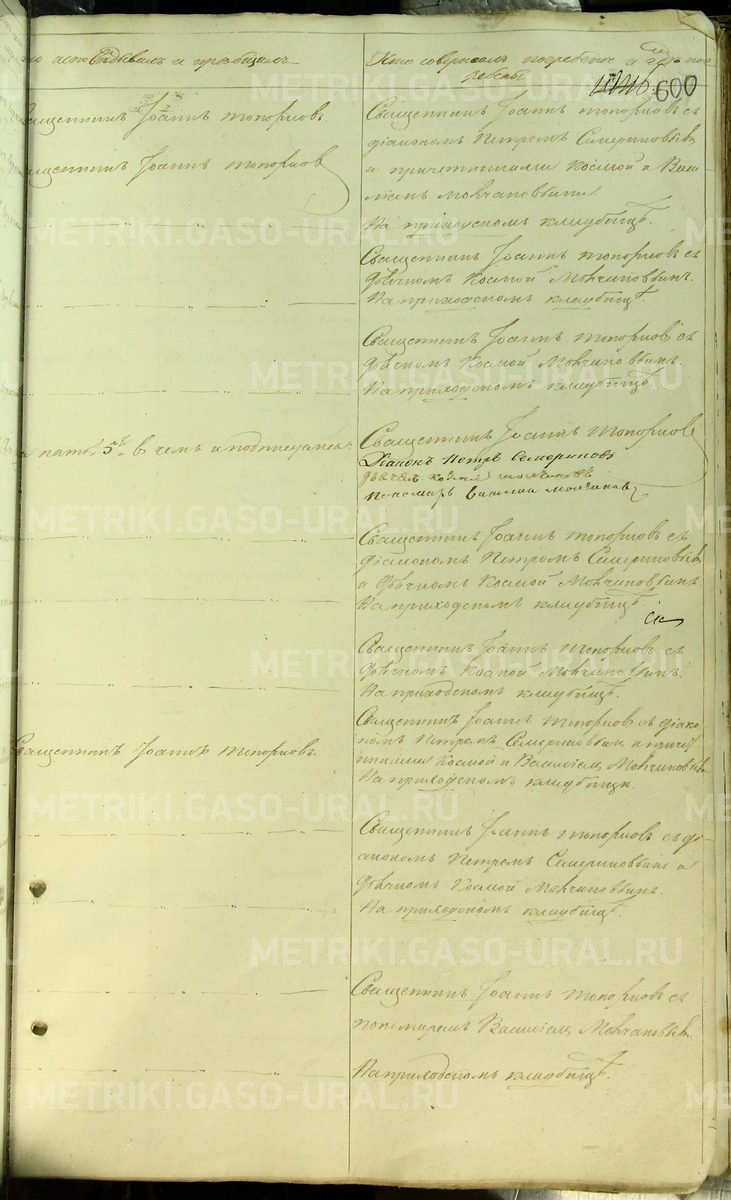 то исповѣдывалъ и пріобщалъ
Кто совершалъ погребеніе и гдѣ пог
ребены
600
Священникъ Іоаннъ Топорковъ
Священникъ Іоаннъ Топорковъ
Священникъ Іоаннъ Топорковъ съ
діакономъ Петромъ
и причетниками Космой и Васи
ліемъ Молчановыми
На приходскомъ кладбищѣ.
Священникъ Іоаннъ Топорковъ съ
дьячкомъ Космой Молчановымъ.
На приходскомъ кладбищѣ
Священникъ Іоаннъ Топорковъ съ
дьячкомъ Космой Молчановымъ.
На приходскомъ кладбищѣ.
5 въ чемъ и подписуемся:
Священникъ Іоаннъ Топорковъ
Діаконъ Петръ
Пономарь Василій Молчановъ
Священникъ Іоаннъ Топорковъ съ
діакономъ Петромъ
и дьячкомъ Космой Молчановымъ
На приходскомъ кладбищѣ.
Священникъ Іоаннъ Топорковъ съ
дьячкомъ Космой Молчановымъ.
На приходскомъ кладбищѣ.
Священникъ Іоаннъ Топорковъ.
Священникъ Іоаннъ Топорковъ съ діако
номъ Петромъ и приче
тниками Космой и Василіемъ Молчановыми
На приходскомъ кладбищѣ.
Священникъ Іоаннъ Топорковъ съ ді-
акономъ Петромъ и
дьячкомъ Космой Молчановымъ.
На приходскомъ кладбищѣ.
Священникъ Іоаннъ Топорковъ съ
пономаремъ Василіемъ Молчановымъ.
На приходскомъ кладбищѣ.
METRIKI.GASO-URAL.RU